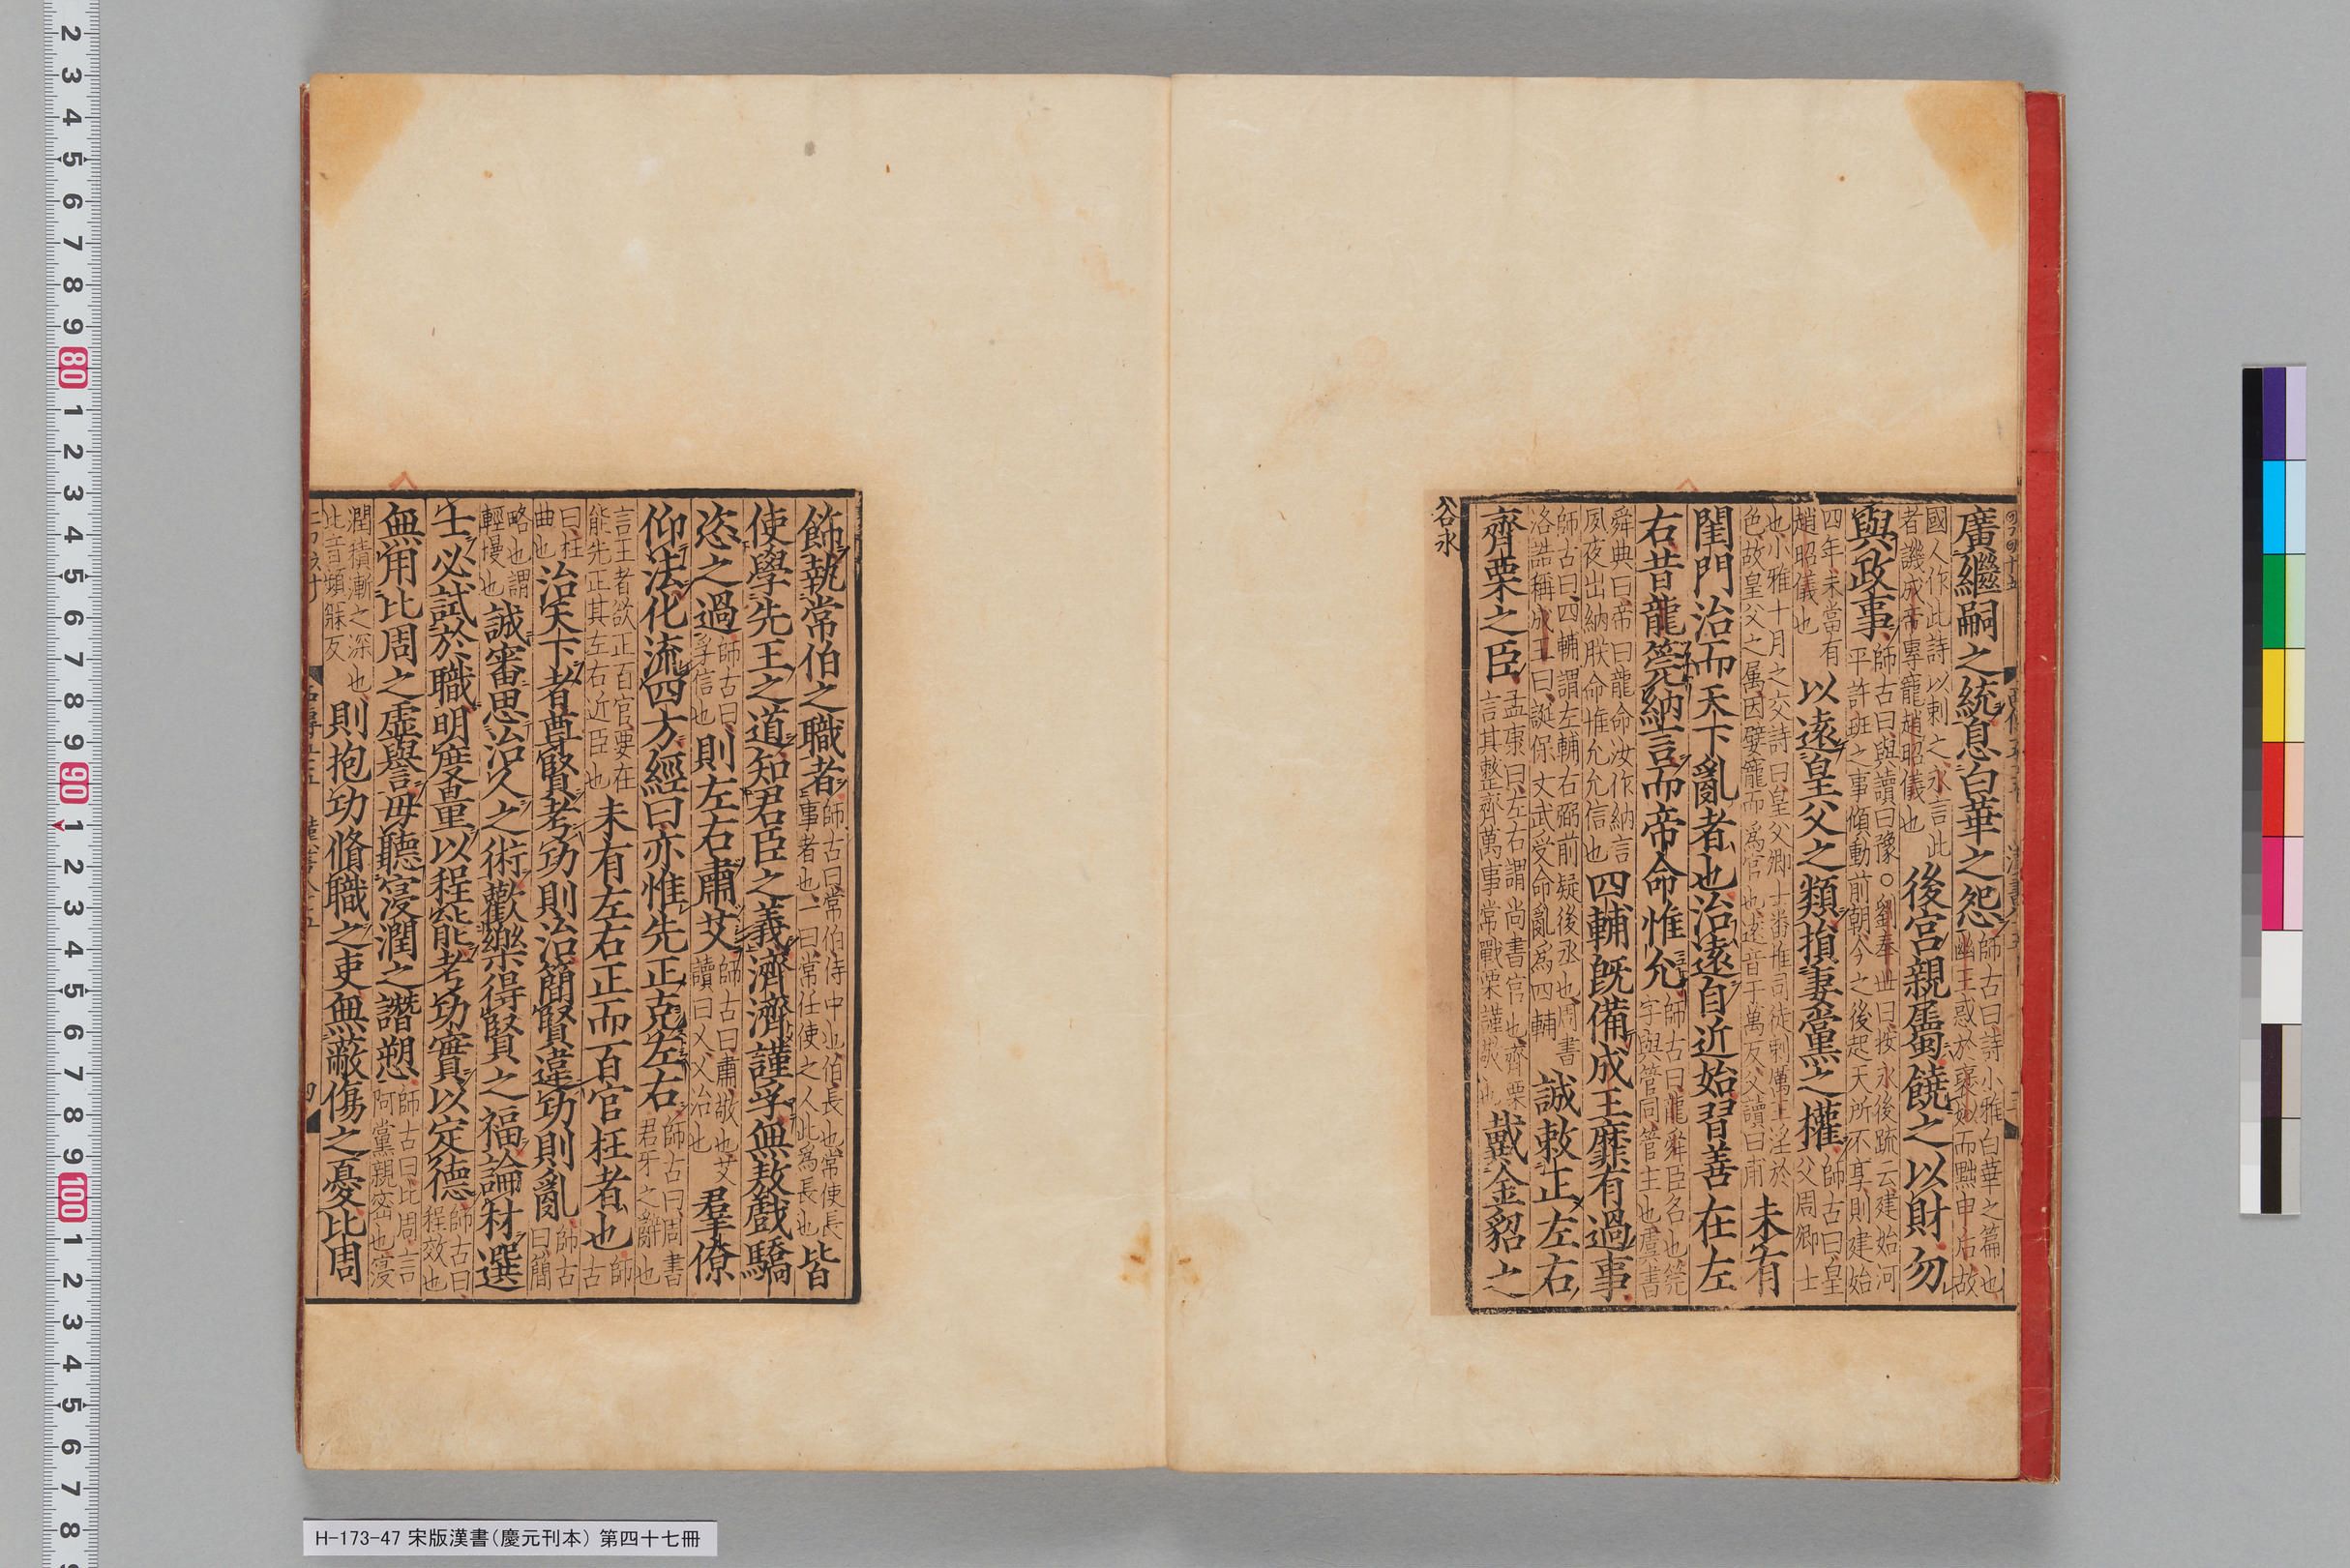 廣繼嗣之統息白華之怨師古曰詩小雅白華之篇也幽王惑於襃姒而黜申后故
國人作此詩以刺之永言此者譏成帝專寵趙昭儀也後宮親屬饒之以財勿
與政事師古曰與讀曰豫○劉奉世曰按永後疏云建始河平許班之事傾動前朝今之後起天所不享則建始
四年未當有趙昭儀也以遠皇父之類損妻黨之權師古曰皇父周卿士
也小雅十月之交詩曰皇父卿士番惟司徒刺厲王淫於色故皇父之屬因嬖寵而爲官也遠音于萬反父讀曰甫未有
閨門治而天下亂者也治遠自近始習善在左
右昔龍筦納言而帝命惟允師古曰龍舜臣名也筦字與管同管主也虞書
舜典曰帝曰龍命汝作納言夙夜出納朕命惟允允信也四輔旣備成王靡有過事
師古曰四輔謂左輔右弼前疑後丞也周書洛誥稱成王曰誕保文武受命亂爲四輔誠敕正左右
齊栗之臣孟康曰左右謂尚書官也齊栗言其整齊萬事常戰栗謹敬也戴金貂之
谷永
飾執常伯之職者師古曰常伯侍中也伯長也常使長事者也一曰常任使之人此爲長也皆
使學先王之道知君臣之義濟濟謹孚無敖戲驕
恣之過師古曰孚信也則左右肅艾師古曰肅敬也艾讀曰乂乂治也羣僚
仰法化流四方經曰亦惟先正克左右師古曰周書君牙之辭也
言王者欲正百官要在能先正其左右近臣也未有左右正而百官枉者也師古
曰枉曲也治天下者尊賢考功則治簡賢違功則亂師古曰簡
略也謂輕慢也誠審思治久之術歡樂得賢之福論材選
士必試於職明度量以程能考功實以定德師古曰程效也
無用比周之虛譽毋聽寖潤之譖愬師古曰比周言阿黨親密也寖
潤積漸之深也此音頻寐反則抱功脩職之吏無蔽傷之憂比周
H-173-47 宋版漢書（慶元刊本） 第四十七冊